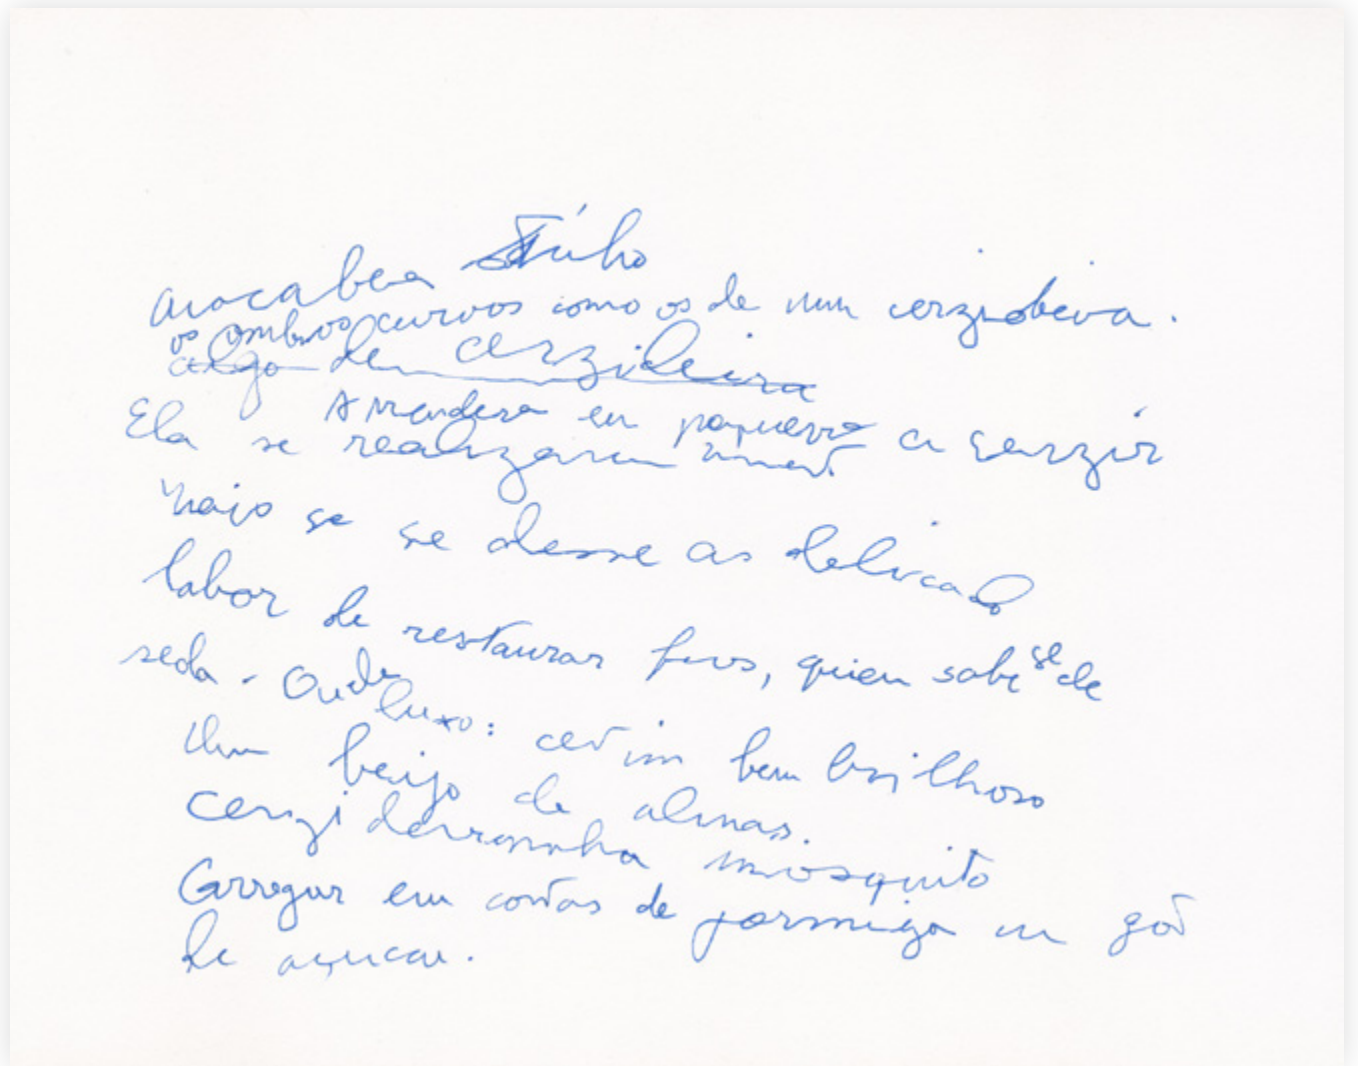 Macabea tinha
os ombros curvos como os de uma cerzideira.
algo de cerzideira
Aprendera em pequena a cerzir
Ela se realizaria muito
mais se se desse ao delicado
labor de restaurar fios, quem sabe se de
seda. Ou de
luxo: cetim bem brilhoso
Um beijo de almas.
cerzideirinha mosquito
Carregar em costas de formiga um grão
de açucar.